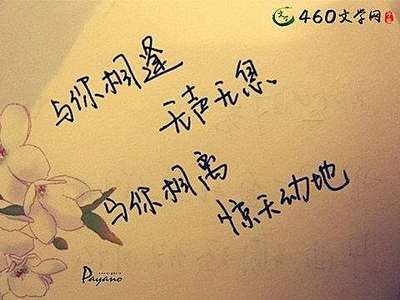 460文学网
与你相逢
无声无息
与你相离
惊天动地
Payano